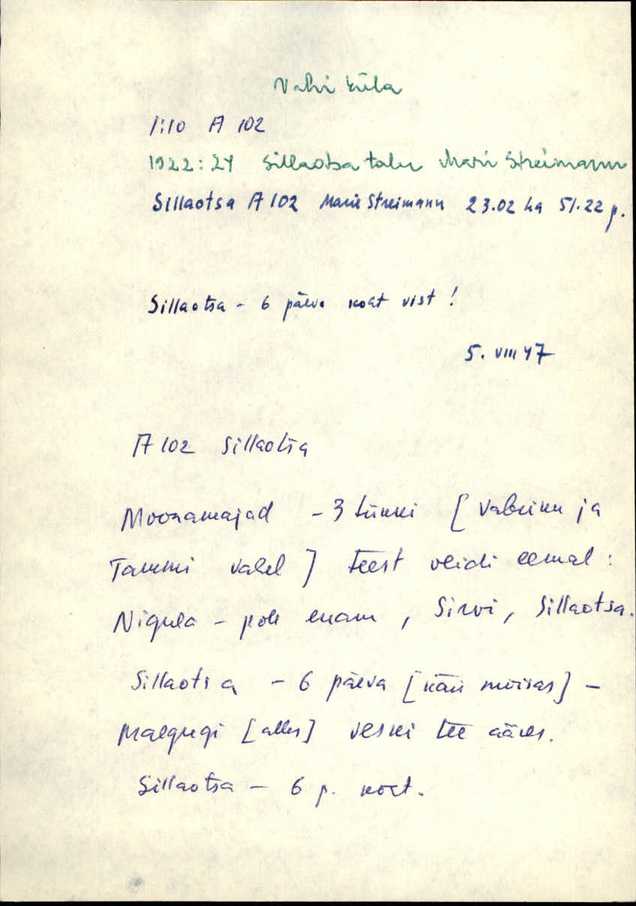 Vahi küla
1:10 A 102
1922: 24 Sillaotsa talu Marie Streimann
Sillaotsa A 102 Marie Streimann 23.02 ha 51.22 p.
Sillaotsa - 6 päeva koht vist!
5. VIII 47
A 102 Sillaotsa
Moonamajad - 3 tükki [ ja
Tammi vahel ] teest veidi eemal :
Nigula - pole enam, Sirvi, Sillaotsa.
Sillaotsa - 6 päeva [käis mõisas] -
[alles] veski tee ääres.
Sillaotsa - 6 p. koht.